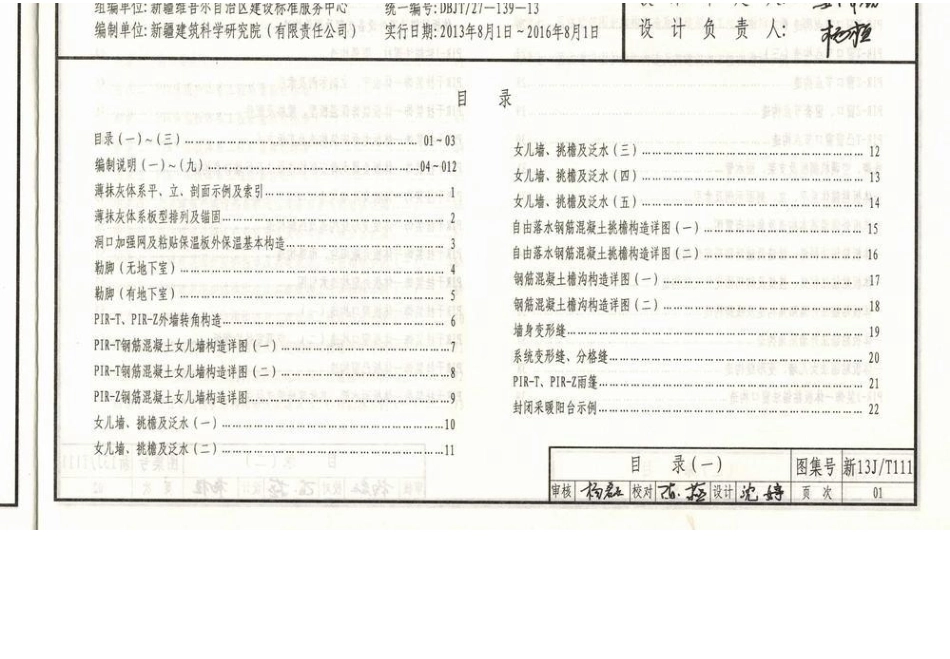 组编单位:新疆维吾尔自治区建设标准服务中心 统一编号:DBJT/27-139-13
编制单位:新疆建筑科学研究院(有限责任公司) 实行日期:2013年8月1日~2016年8月1日
设计负责人:
目 录
目录(一)~(三)……01~03
编制说明(一)~(九)……04~012
薄抹灰体系平、立、剖面示例及索引……1
薄抹灰体系板型排列及锚固……2
洞口加强网及粘贴保温板外保温基本构造……3
勒脚(无地下室)……4
勒脚(有地下室)……5
PIR-T、PIR-Z外墙转角构造……6
PIR-T钢筋混凝土女儿墙构造详图(一)……7
PIR-T钢筋混凝土女儿墙构造详图(二)……8
PIR-Z钢筋混凝土女儿墙构造详图……9
女儿墙、挑檐及泛水(一)……10
女儿墙、挑檐及泛水(二)……11
女儿墙、挑檐及泛水(三)……12
女儿墙、挑檐及泛水(四)……13
女儿墙、挑檐及泛水(五)……14
自由落水钢筋混凝土挑檐构造详图(一)……15
自由落水钢筋混凝土挑檐构造详图(二)……16
钢筋混凝土檐沟构造详图(一)……17
钢筋混凝土檐沟构造详图(二)……18
墙身变形缝……19
系统变形缝、分格缝……20
PIR-T、PIR-Z雨篷……21
封闭采暖阳台示例……22
目 录(一) 图集号 新13J/T111
审核 校对 设计 沈婷 页次 01